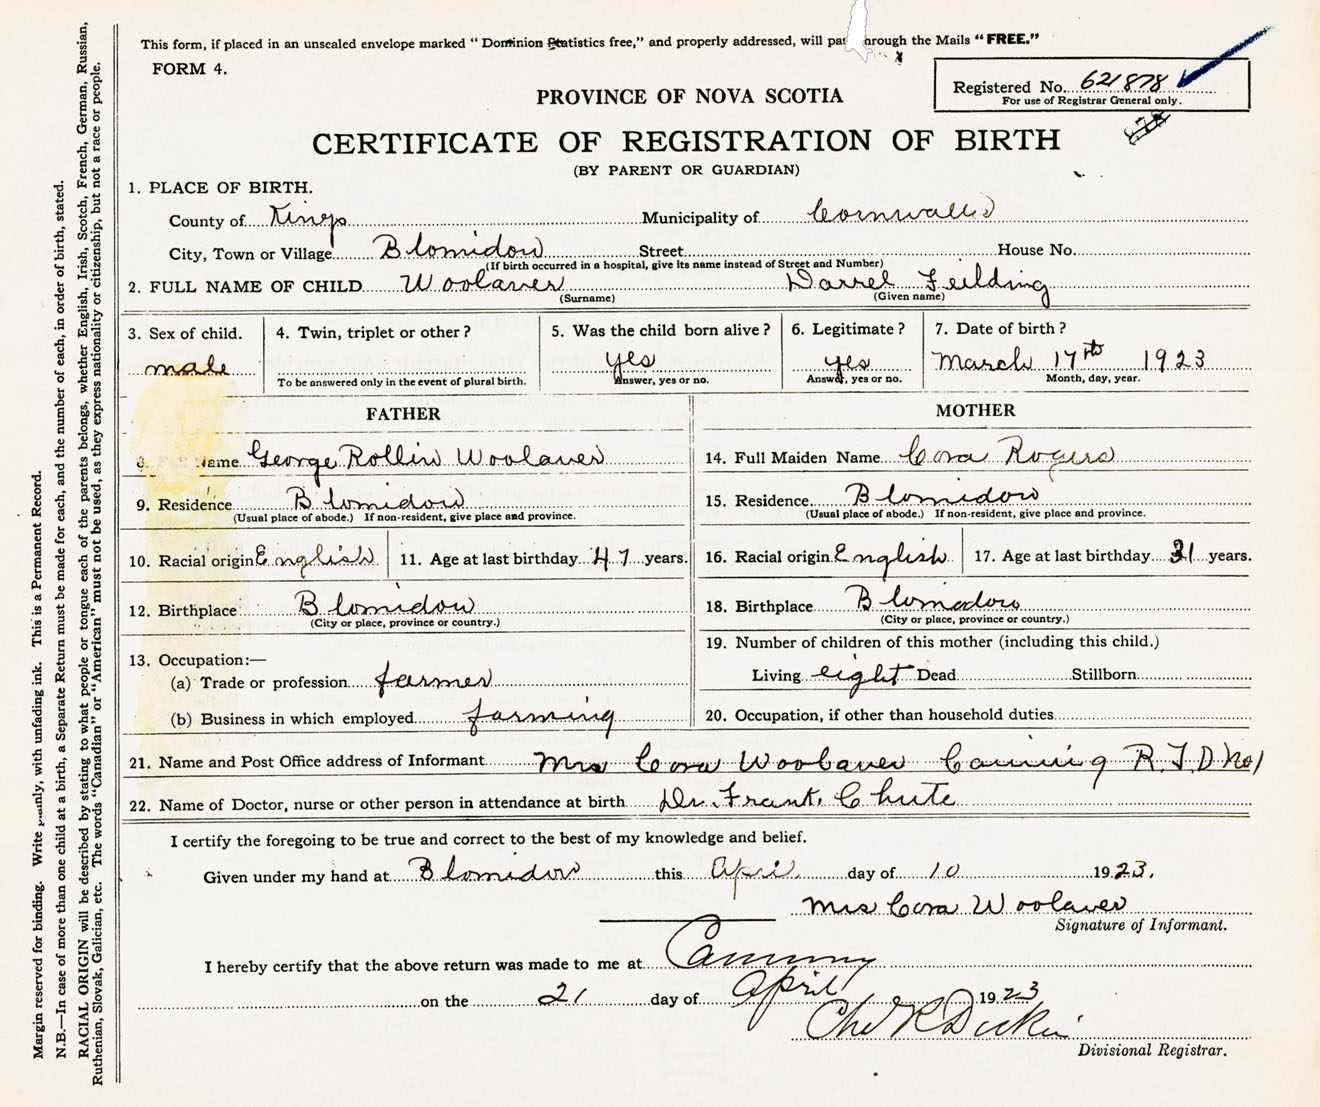 This form, if placed in an unsealed envelope marked "Dominion Statistics free," and properly addressed, will pass through the Mails "FREE."
FORM 4.
Registered No. 621878
For use of Registrar General only.
PROVINCE OF NOVA SCOTIA
CERTIFICATE OF REGISTRATION OF BIRTH
(BY PARENT OR GUARDIAN)
1. PLACE OF BIRTH.
County of Kings Municipality of Cornwallis
City, Town or Village Blomidow Street House No.
(If birth occurred in a hospital, give its name instead of Street and Number)
2. FULL NAME OF CHILD Woolaver Darrel Feilding
(Surname) (Given name)
3. Sex of child. 4. Twin, triplet or other? 5. Was the child born alive? 6. Legitimate? 7. Date of birth?
male yes yes March 17th 1923
To be answered only in the event of plural birth. Answer, yes or no. Answer, yes or no. Month, day, year.
FATHER MOTHER
8. Full Name George Rollin Woolaver 14. Full Maiden Name Cora Rogers
9. Residence Blomidow 15. Residence Blomidow
(Usual place of abode.) If non-resident, give place and province. (Usual place of abode.) If non-resident, give place and province.
10. Racial origin English 11. Age at last birthday 47 years. 16. Racial origin English 17. Age at last birthday 31 years.
12. Birthplace Blomidow 18. Birthplace Blomidow
(City or place, province or country.) (City or place, province or country.)
19. Number of children of this mother (including this child.)
13. Occupation:—
(a) Trade or profession farmer Living eight Dead Stillborn
(b) Business in which employed farming 20. Occupation, if other than household duties
21. Name and Post Office address of Informant Mrs Cora Woolaver Canning R.F.D No 1
22. Name of Doctor, nurse or other person in attendance at birth Dr. Frank Chute
I certify the foregoing to be true and correct to the best of my knowledge and belief.
Given under my hand at Blomidow this April day of 10 1923.
Mrs Cora Woolaver
Signature of Informant.
I hereby certify that the above return was made to me at Canning
on the 21 day of April 1923
Divisional Registrar.
Margin reserved for binding. Write plainly, with unfading ink. This is a Permanent Record.
N.B.—In case of more than one child at a birth, a Separate Return must be made for each, and the number of each, in order of birth, stated.
RACIAL ORIGIN will be described by stating to what people or tongue each of the parents belongs, whether English, Irish, Scotch, French, German, Russian,
Ruthenian, Slovak, Galician, etc. The words "Canadian" or "American" must not be used, as they express nationality or citizenship, but not a race or people.